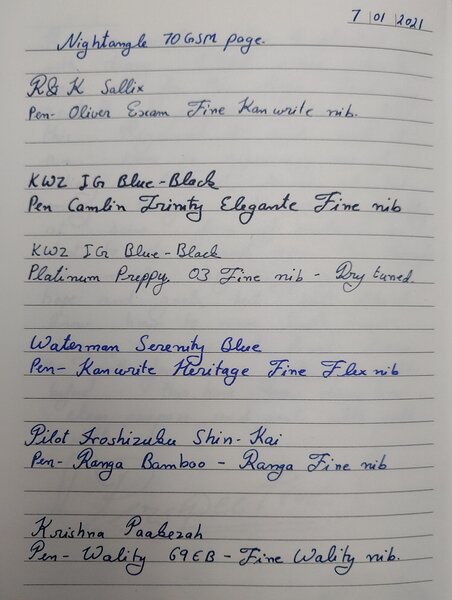 7 | 01 | 2021
Nightangle 70GSM page.
R&K Sallix
Pen- Oliver Exam Fine Kanwrite nib.
KWZ IG Blue-Black
Pen Camlin Trinity Elegante Fine nib
KWZ IG Blue-Black
Platinum Preppy 03 Fine nib - Dry tuned.
Waterman Serenity Blue
Pen- Kanwrite Heritage Fine Flex nib
Pilot Iroshizuku Shin-Kai
Pen- Ranga Bamboo - Ranga Fine nib
Krishna Paakezah
Pen- Wality 69EB - Fine Wality nib.